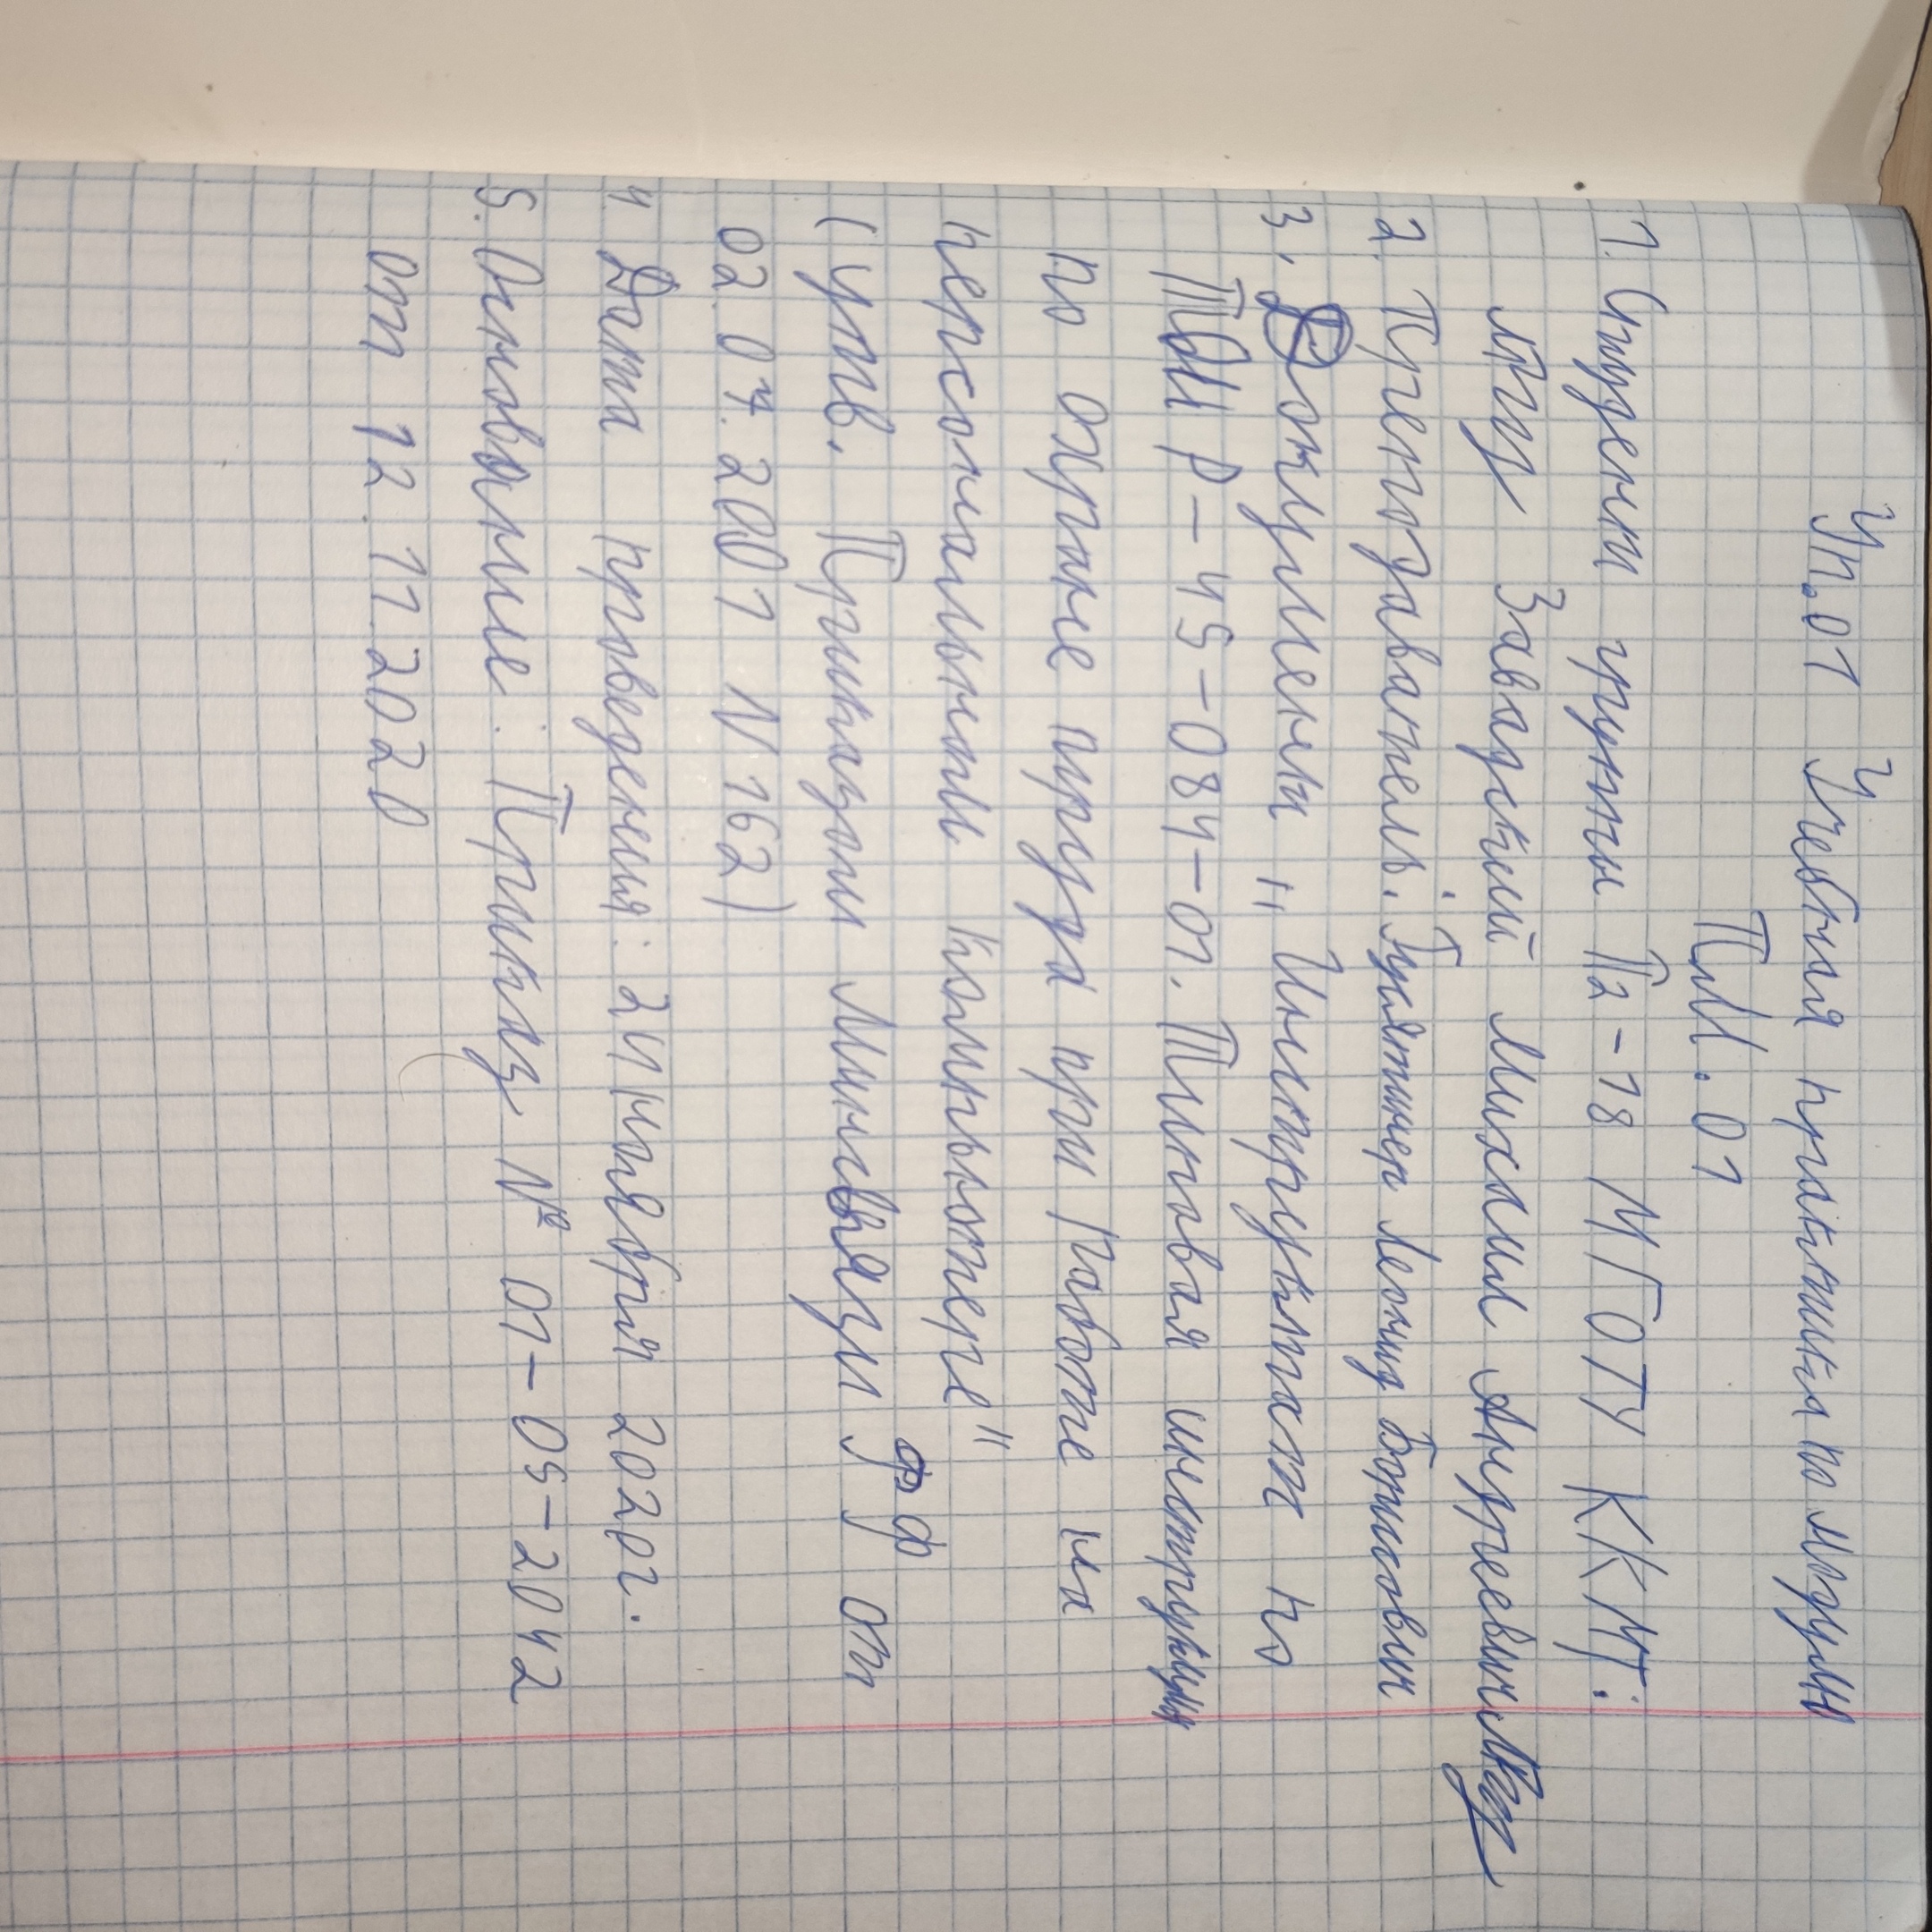 Уп.01 Учебная практика по модулю
ПМ.01
1. Студент группы П2-18 МГОТУ ККМТ:
Завадский Михаил Андреевич
2. Преподаватель: Гусятинер Леонид Борисович
3. Документ "Инструктаж по
ТОИ Р-45-084-01. Типовая инструкция
по охране труда при работе на
персональном компьютере"
(утв. Приказом Минсвязи РФ от
02.07.2001 N 162)
4. Дата проведения: 24 ноября 2020г.
5. Основание: Приказ № 01-05-2042
от 12.11.2020